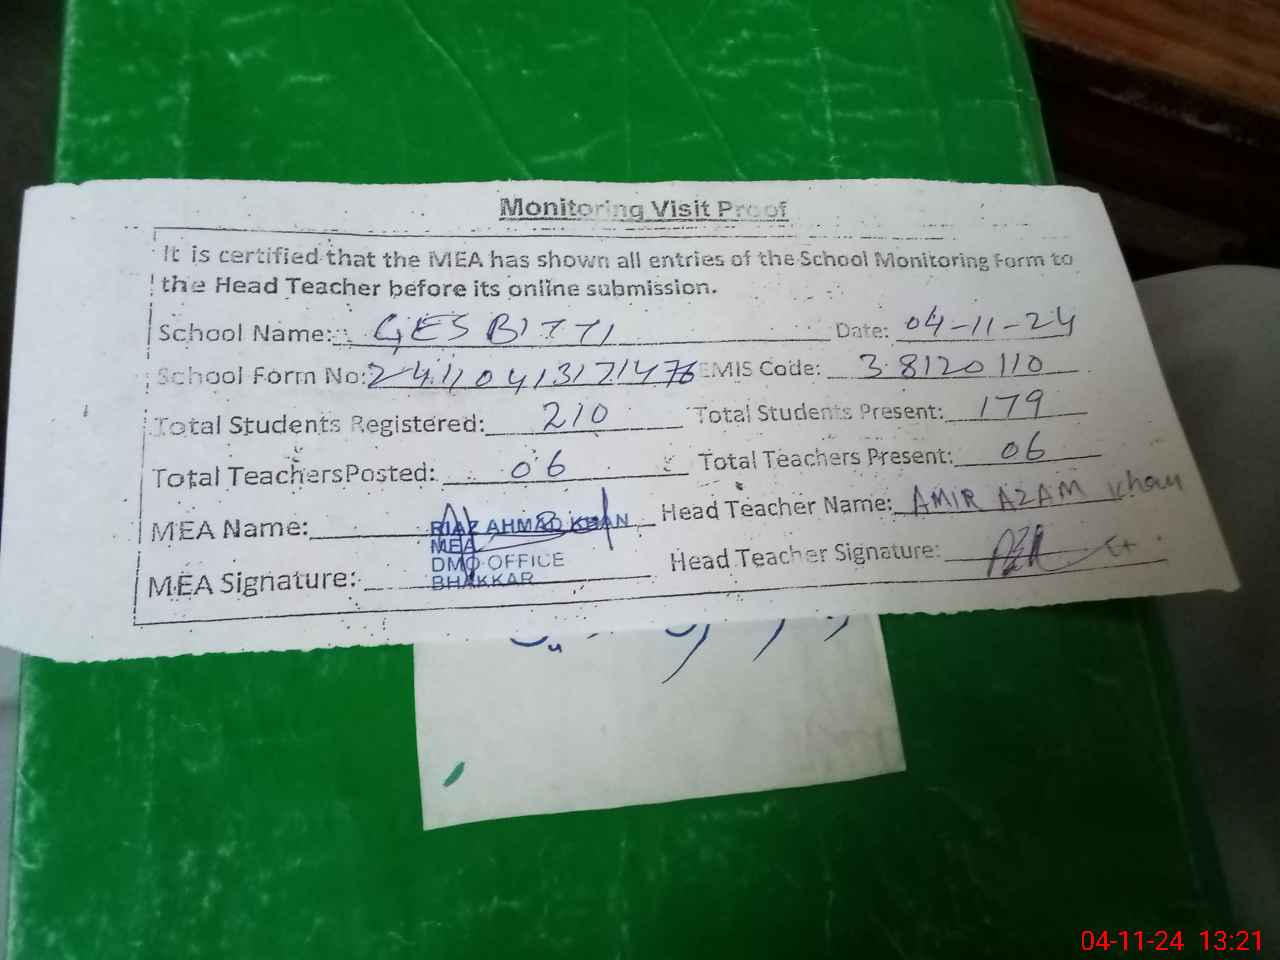 Monitoring Visit Proof
It is certified that the MEA has shown all entries of the School Monitoring Form to
the Head Teacher before its online submission.
School Name: GES BITTI Date: 04-11-24
School Form No: 24110413171476 EMIS Code: 38120110
Total Students Registered: 210 Total Students Present: 179
Total TeachersPosted: 06 Total Teachers Present: 06
MEA Name: RIAZ AHMAD KHAN Head Teacher Name: AMIR AZAM Khan
MEA
DMO OFFICE
MEA Signature: BHAKKAR Head Teacher Signature:
04-11-24 13:21